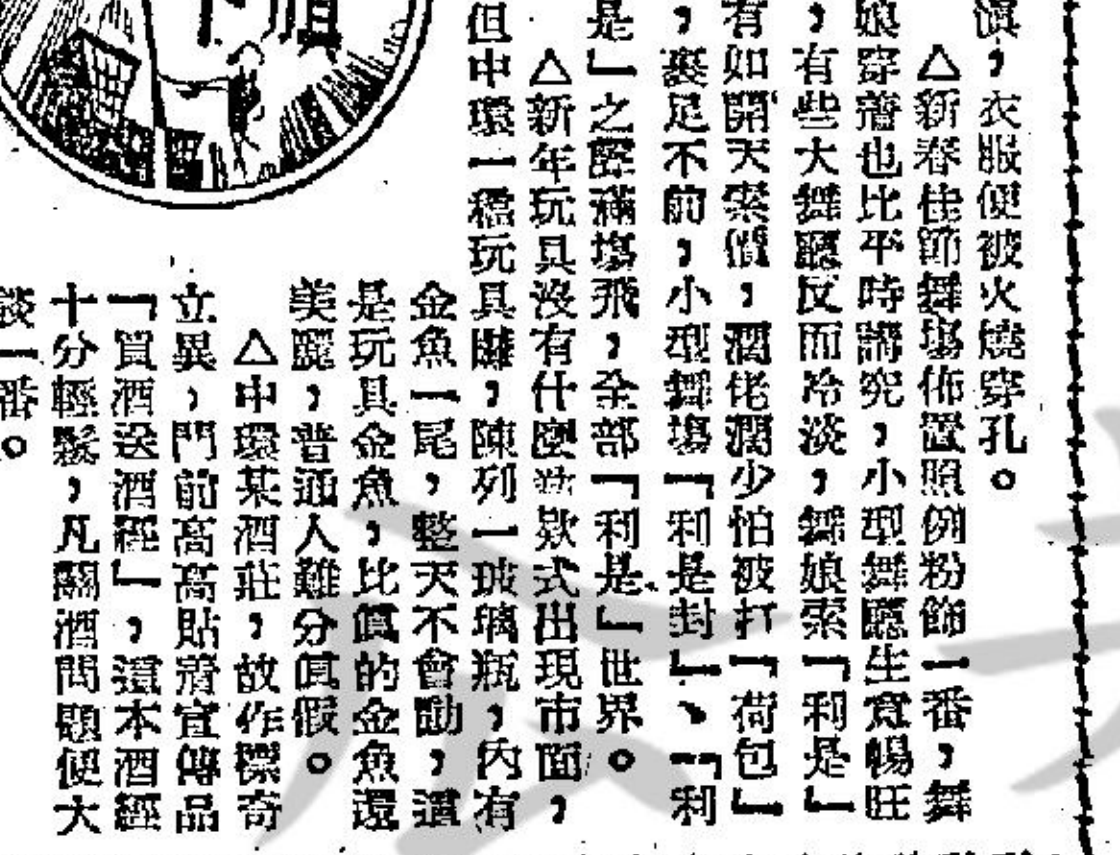 滇，衣服便被火燒穿孔。
△新春佳節舞塲佈置照例粉飾一番，舞
娘穿着也比平時講究，小型舞廳生意暢旺
，有些大舞廳反而冷淡，舞娘索「利是」
有如開天索價，濶佬濶少怕被打「荷包」
，裹足不前，小型舞塲「利是封」、「利
是」之聲滿塲飛，全部「利是」世界。
△新年玩具沒有什麽欵式出現市面，
但中環一檔玩具攤，陳列一玻璃瓶，內有
金魚一尾，整天不會動，這
是玩具金魚，比眞的金魚還
美麗，普通人難分眞假。
△中環某酒莊，故作標奇
立異，門前高高貼着宣傳品
「買酒送酒經」，這本酒經
十分輕鬆，凡關酒問題便大
談一番。